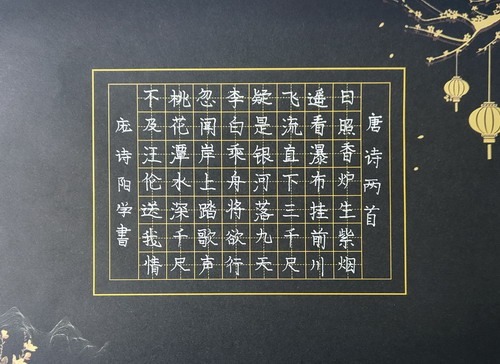 唐诗两首
日照香炉生紫烟
遥看瀑布挂前川
飞流直下三千尺
疑是银河落九天
李白乘舟将欲行
忽闻岸上踏歌声
桃花潭水深千尺
不及汪伦送我情
庞诗阳学書